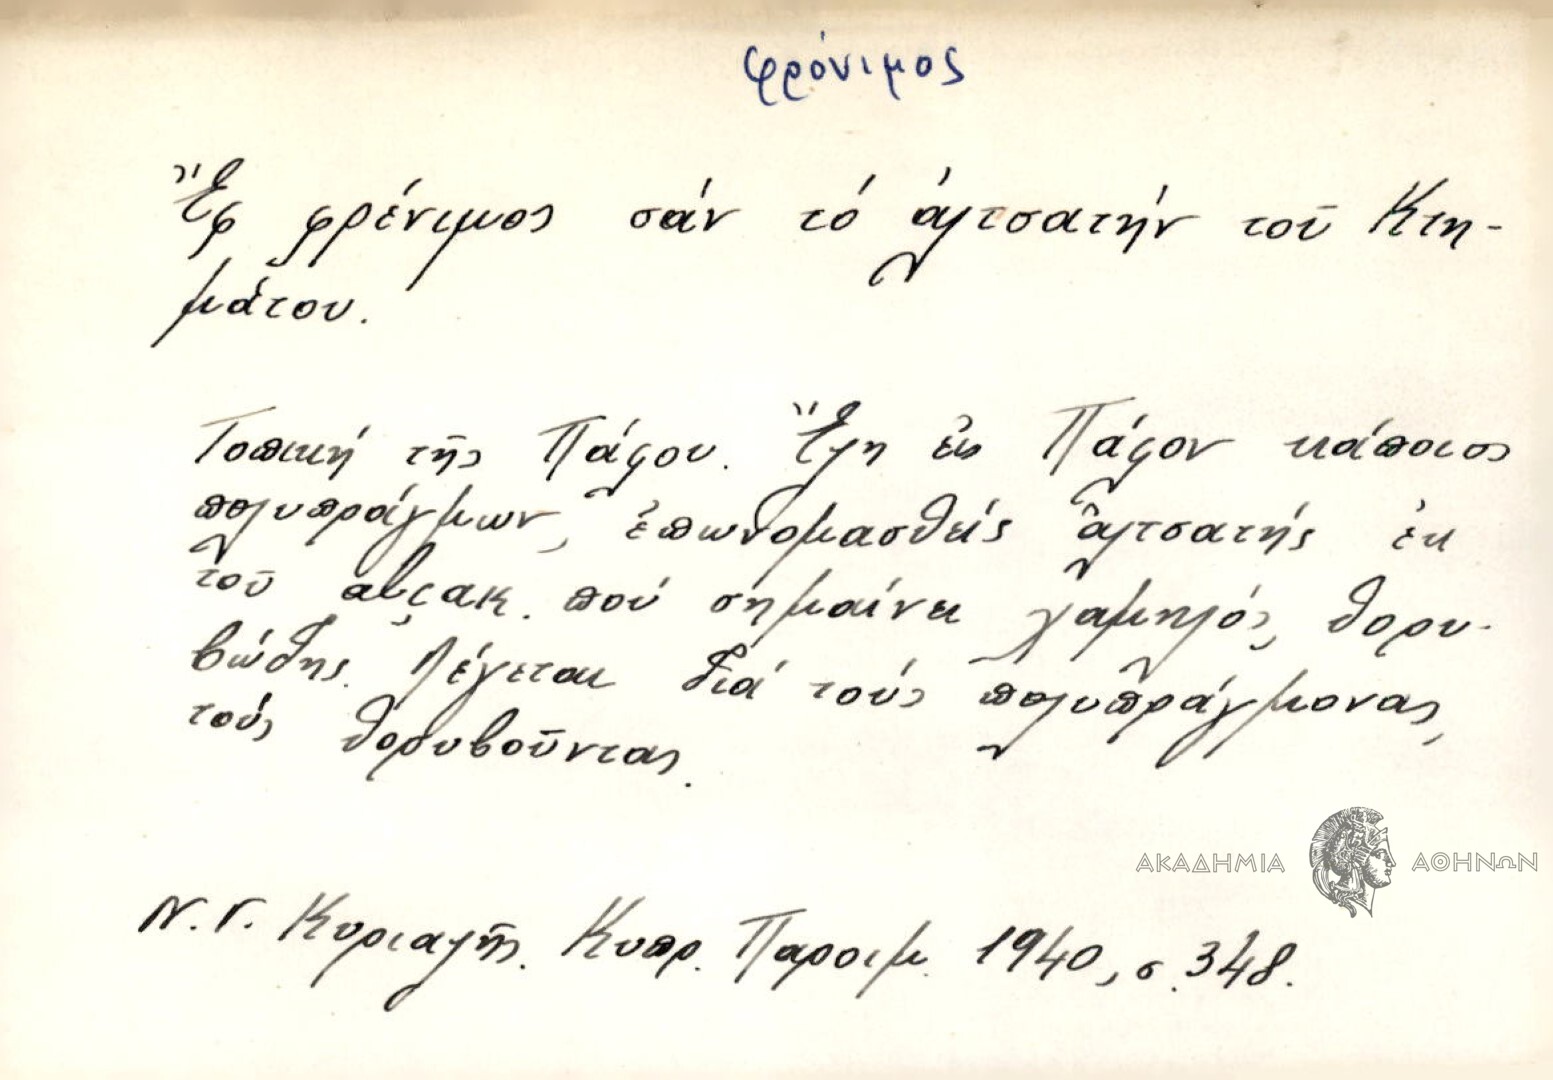 φρόνιμος
Ἔφ φρένιμος σάν τό ἀλτσατήν τοῦ Κτη-
μάτου.
Τοπική τῆς Πάφου. Ἔζη εἰς Πάφον κάποιος
πολυπράγμων, ἐπωνομασθείς ἀλτσατής ἐκ
τοῦ αλςακ. πού σημαίνει χαμηλός, θορυ-
βώδης. Λέγεται διά τούς πολυπράγμονας,
τούς θορυβοῦντας.
ΑΚΑΔΗΜΙΑ ΑΘΗΝΩΝ
Ν. Γ. Κυριαζῆς. Κυπρ. Παροιμ. 1940, σ. 348.